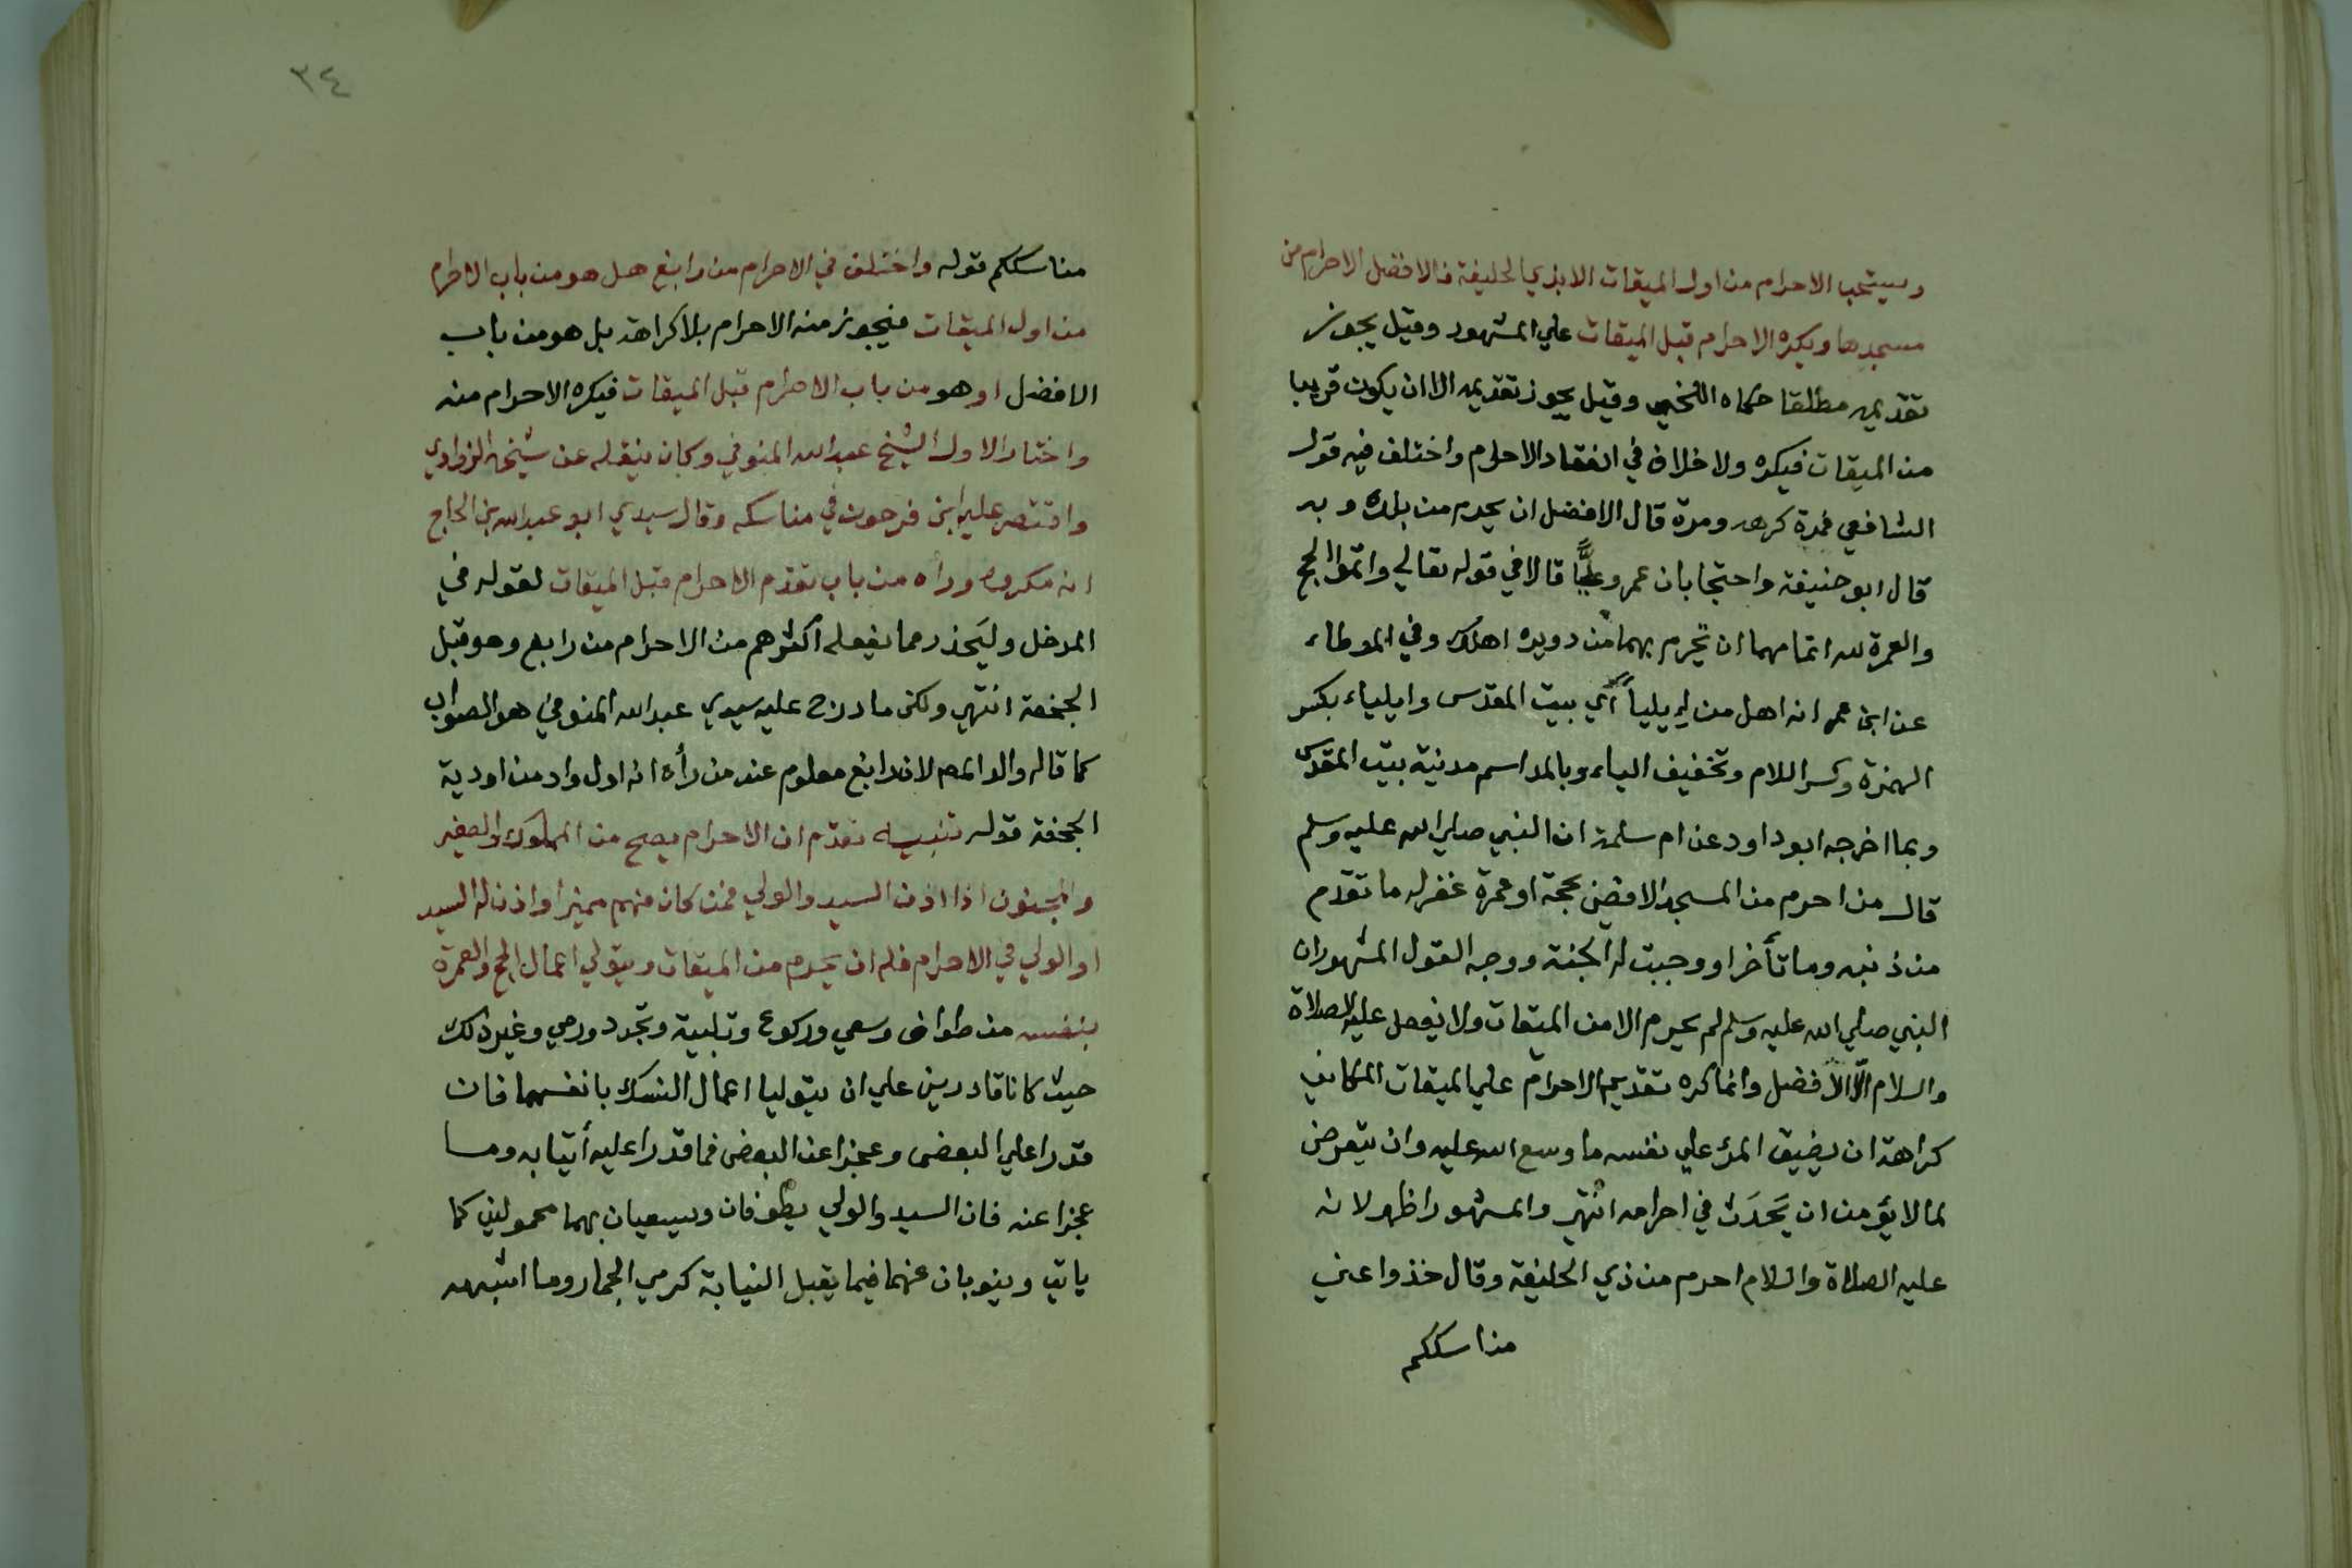 ويستحب الاحرام من اول الميقات الا بذي الحليفة فالافضل الاحرام من
مسجدها ويكره الاحرام قبل الميقات علي المشهور وقيل يجوز
تقديمه مطلقا حكاه اللخمي وقيل يجوز تقديمه الا ان يكون قريبا
من الميقات فيكره ولا خلاف في انعقاد الاحرام واختلف فيه قول
الشافعي فمرة كرهه ومرة قال الافضل ان يحرم من بلده وبه
قال ابو حنيفة واحتجا بان عمر وعليًّا قالا في قوله تعالي واتموا الحج
والعمرة لله اتمامهما ان تحرم بهما من دويره اهلك وفي الموطاء
عن ابن عمر انه اهل من إيلياً أي بيت المقدس وايلياء بكسر
الهمزة وكسر اللام وتخفيف الياء وبالمد اسم مدنية بيت المقدس
وبما اخرجه ابو داود عن ام سلمة ان النبي صلي الله عليه وسلم
قال من احرم من المسجد الاقصي بحجة او عمرة غفر له ما تقدم
من ذنبه وما تأخر او وجبت له الجنة ووجه القول المشهور ان
النبي صلي الله عليه وسلم لم يحرم الا من الميقات ولا يفعل عليه الصلاة
والسلام الّا الافضل وانما كره تقديم الاحرام علي الميقات المكاني
كراهة ان يضيق المرء علي نفسه ما وسع الله عليه وان يتعرض
لما لا يؤمن ان يَحدَث في احرامه انتهي والمشهور اظهر لانه
عليه الصلاة والسلام احرم من ذي الحليفة وقال خذوا عني
مناسككم
٣٤
مناسككم قوله واختلف في الاحرام من رابغ هل هو من باب الاحرام
من اول الميقات فيجوز منه الاحرام بلا كراهة بل هو من باب
الافضل او هو من باب الاحرام قبل الميقات فيكره الاحرام منه
واختار الاول الشيخ عبد الله المنوفي وكان ينقله عن شيخه الزواوي
واقتصر عليه ابن فرحون في مناسكه وقال سيدي ابو عبد الله بن الحاج
انه مكروه وراه من باب تقدم الاحرام قبل الميقات لقوله في
المدخل وليَحذر مما يفعله اكثرهم من الاحرام من رابع وهو قبل
الجحفة انتهي ولكن ما درج عليه سيدي عبد الله المنوفي هو الصواب
كما قاله والد المص لان رابغ معلوم عند من رأه انه اول واد من اودية
الجحفة قوله تنبيه تقدّم ان الاحرام يصح من المملوك والصغير
والمجنون اذا اذن السيد والولي فمن كان منهم مميزا واذن له السيد
او الولي في الاحرام فله ان يحرم من الميقات ويتولي اعمال الحج والعمرة
بنفسه من طواف وسعي وركوع وتلبية وتجرد ورمي وغير ذلك
حيث كانا قادرين علي ان يتوليا اعمال النسك بانفسهما فان
قدرا علي البعض وعجزا عن البعض فما قدرا عليه أتيا به وما
عجزا عنه فان السيد والولي يطوفان ويسعيان بهما محمولين كما
ياتي وينوبان عنهما فيما يقبل النيابة كرمي الجمار وما اشبهه